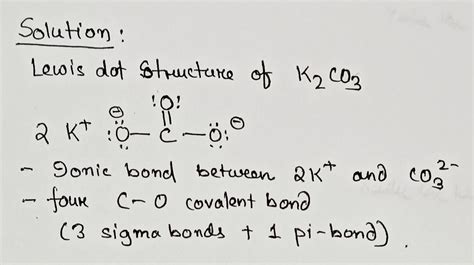 Solution:
Lewis dot structure of K₂CO₃
:O:
2 K⁺ ⊖:Ö—C—Ö:⊖
- Ionic bond between 2K⁺ and CO₃²⁻
- four C-O covalent bond
(3 sigma bonds + 1 pi-bond).